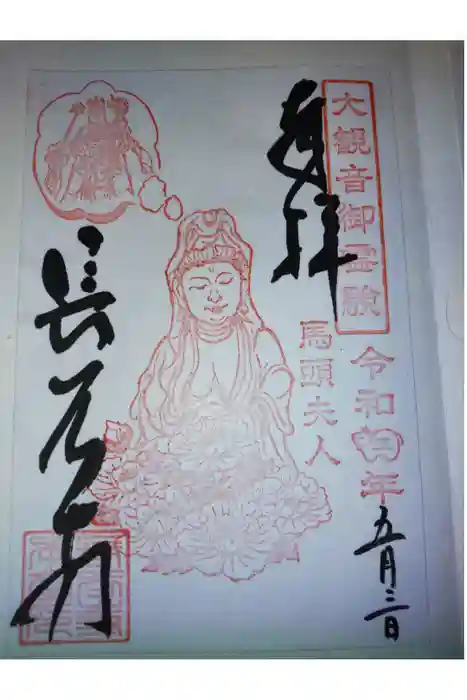 大観音御霊験
奉拝
馬頭夫人
令和年
五月三日
長谷寺